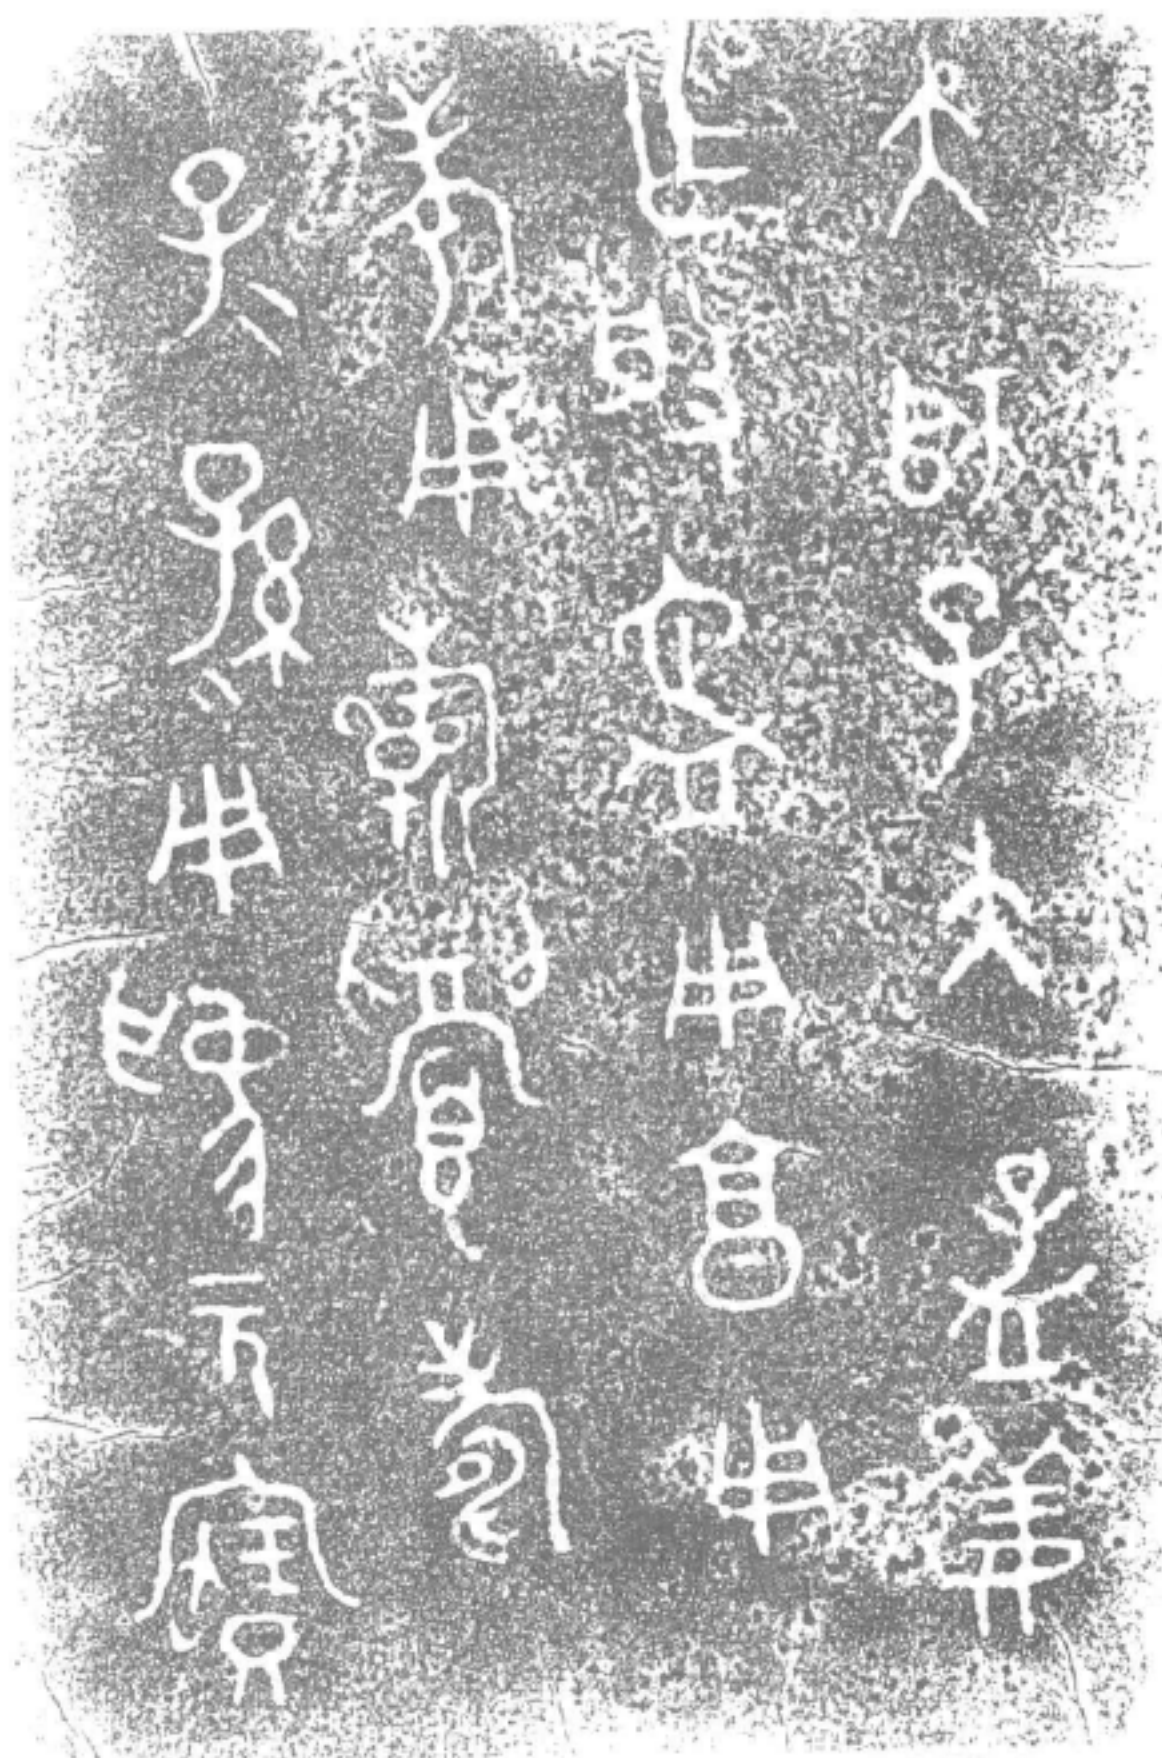 大師子大孟姜
乍般匜用亯用
孝用旂眉壽
子=孫=用為元寶